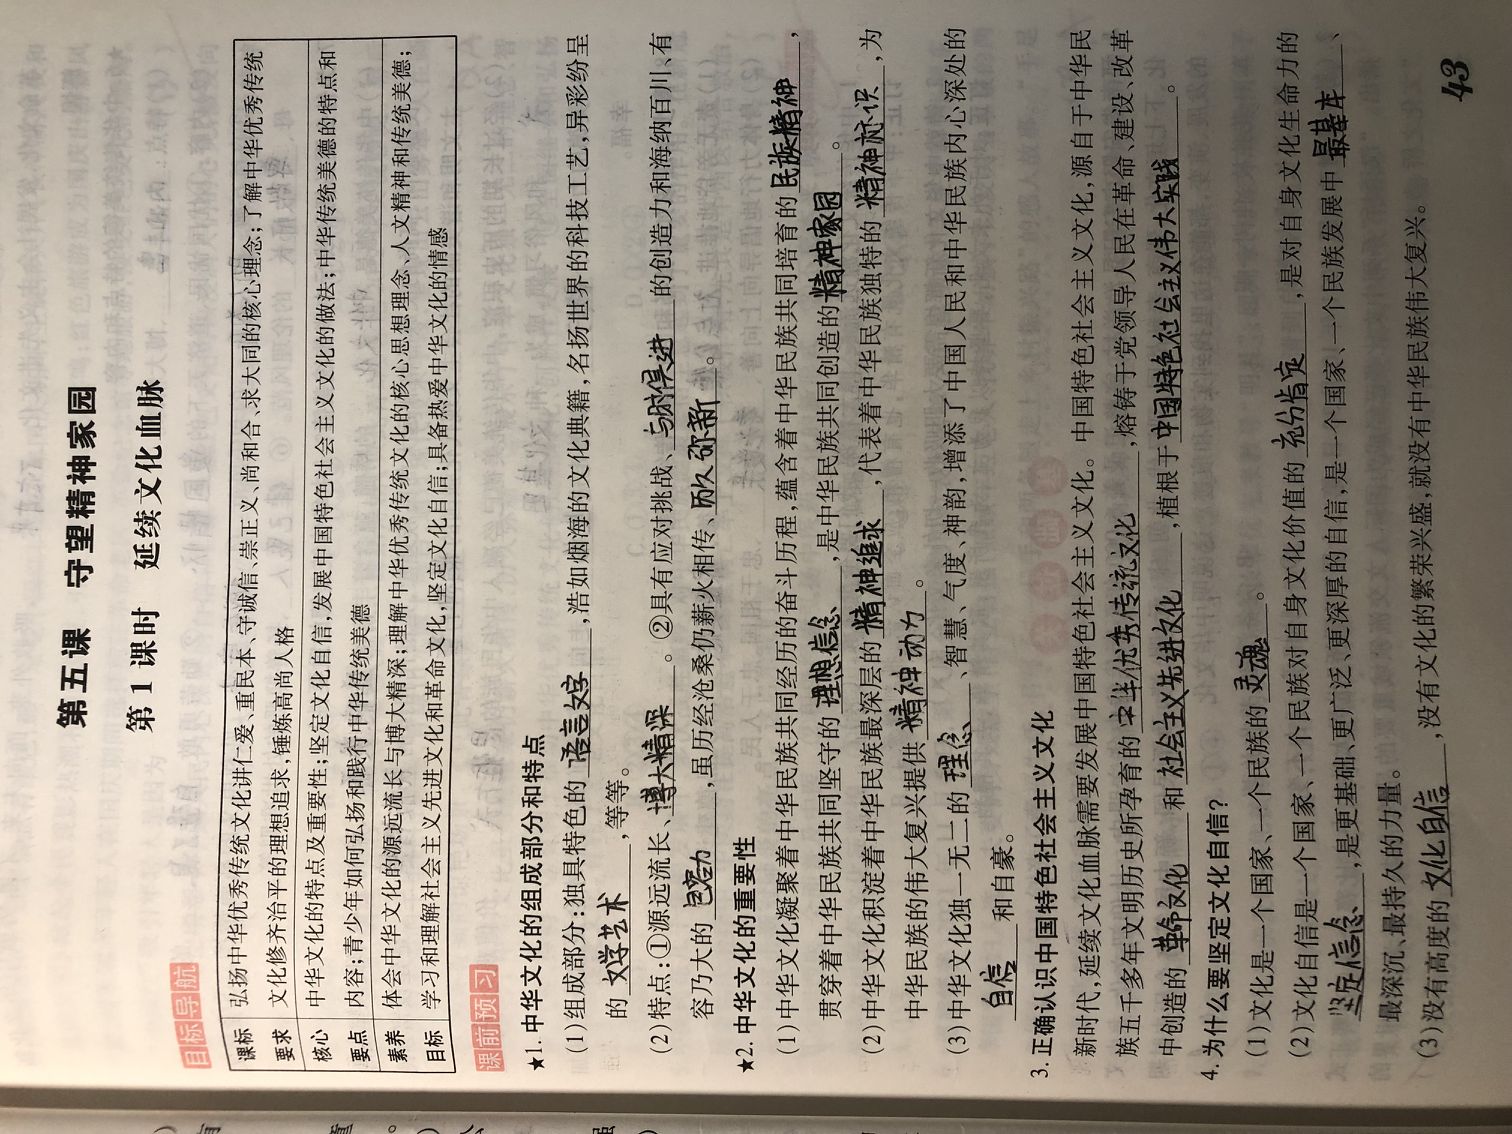 第五课 守望精神家园
第1课时 延续文化血脉
目标导航
课标要求 弘扬中华优秀传统文化讲仁爱、重民本、守诚信、崇正义、尚和合、求大同的核心理念;了解中华优秀传统
文化修齐治平的理想追求,锤炼高尚人格
核心要点 中华文化的特点及重要性;坚定文化自信,发展中国特色社会主义文化的做法;中华传统美德的特点和
内容;青少年如何弘扬和践行中华传统美德
素养目标 体会中华文化的源远流长与博大精深;理解中华优秀传统文化的核心思想理念、人文精神和传统美德;
学习和理解社会主义先进文化和革命文化,坚定文化自信;具备热爱中华文化的情感
课前预习
★1.中华文化的组成部分和特点
(1)组成部分:独具特色的 语言文字 ,浩如烟海的文化典籍,名扬世界的科技工艺,异彩纷呈
的 文学艺术 ,等等。
(2)特点:①源远流长、博大精深 。②具有应对挑战、与时俱进 的创造力和海纳百川、有
容乃大的 包容力 ,虽历经沧桑仍薪火相传、历久弥新 。
★2.中华文化的重要性
(1)中华文化凝聚着中华民族共同经历的奋斗历程,蕴含着中华民族共同培育的 民族精神 ,
贯穿着中华民族共同坚守的 理想信念 ,是中华民族共同创造的 精神家园 。
(2)中华文化积淀着中华民族最深层的 精神追求 ,代表着中华民族独特的 精神标识 ,为
中华民族的伟大复兴提供 精神动力 。
(3)中华文化独一无二的 理念 、智慧、气度、神韵,增添了中国人民和中华民族内心深处的
自信 和自豪。
3.正确认识中国特色社会主义文化
新时代,延续文化血脉需要发展中国特色社会主义文化。中国特色社会主义文化,源自于中华民
族五千多年文明历史所孕育的 中华优秀传统文化 ,熔铸于党领导人民在革命、建设、改革
中创造的 革命文化 和 社会主义先进文化 ,植根于 中国特色社会主义伟大实践 。
4.为什么要坚定文化自信?
(1)文化是一个国家、一个民族的 灵魂 。
(2)文化自信是一个国家、一个民族对自身文化价值的 充分肯定 ,是对自身文化生命力的
坚定信念 ,是更基础、更广泛、更深厚的自信,是一个国家、一个民族发展中 最基本 、
最深沉、最持久的力量。
(3)没有高度的 文化自信 ,没有文化的繁荣兴盛,就没有中华民族伟大复兴。
43